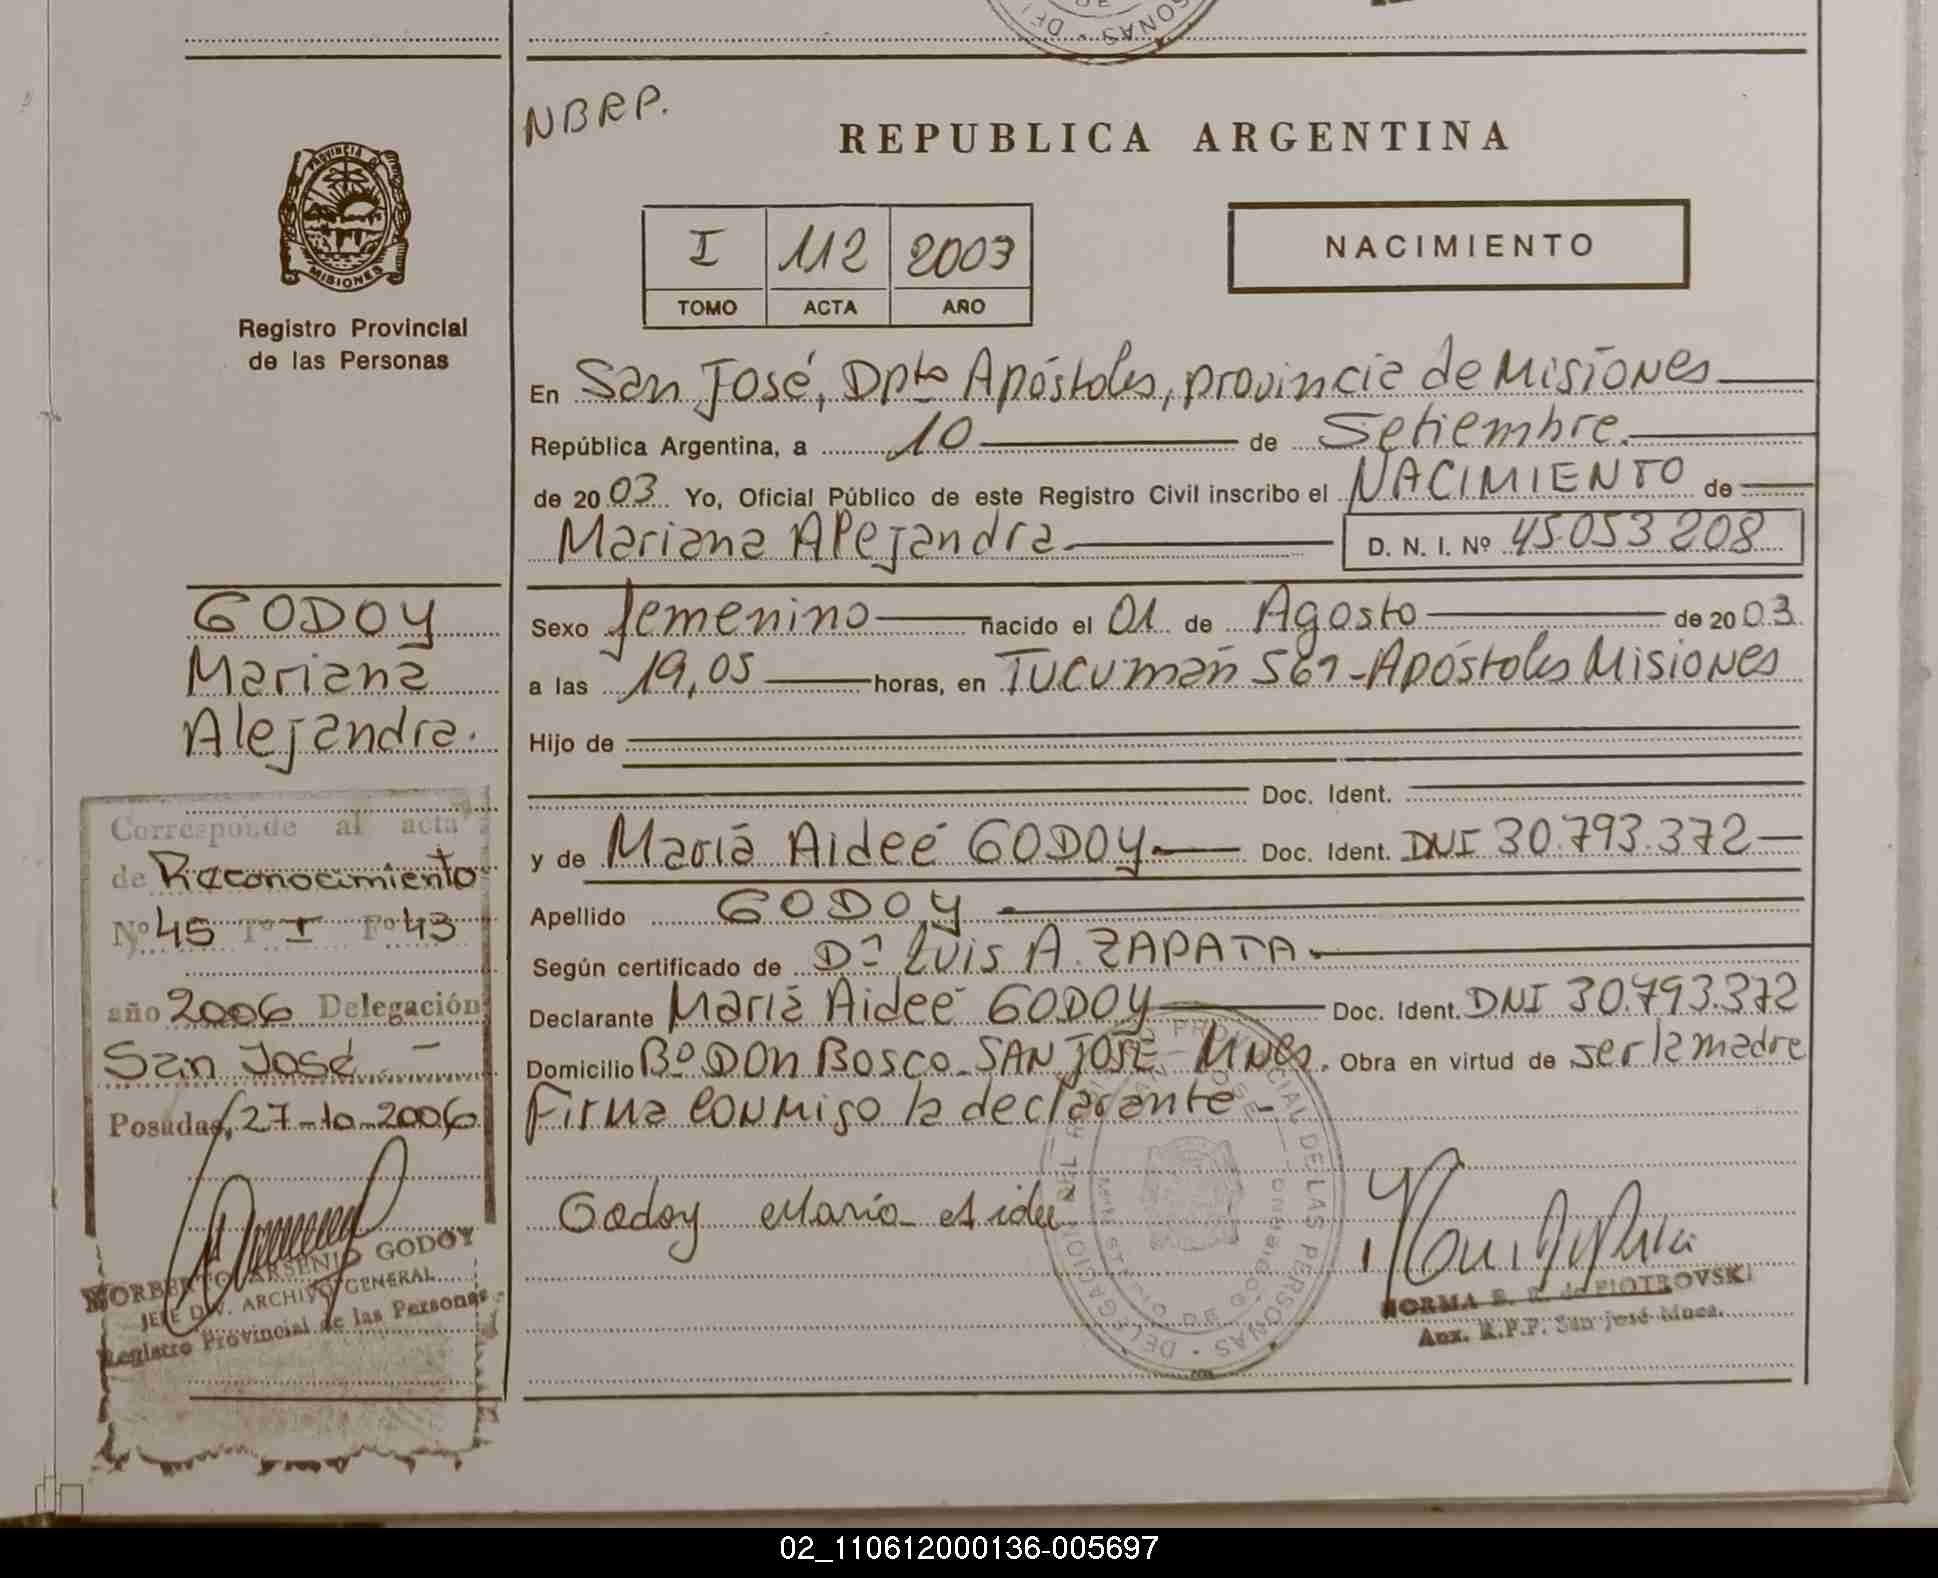 NBRP.
REPUBLICA ARGENTINA
PROVINCIA D
MISIONES
I 112 2003
TOMO ACTA AÑO
NACIMIENTO
Registro Provincial
de las Personas
En San José, Dpto Apóstoles, provincia de Misiones
República Argentina, a 10 de Setiembre.
de 2003 Yo, Oficial Público de este Registro Civil inscribo el NACIMIENTO de
Mariana Alejandra D. N. I. Nº 45.053208
GODOY
Mariana
Alejandra.
Sexo femenino nacido el 01 de Agosto de 2003.
a las 19,05 horas, en Tucumán 561-Apóstoles Misiones
Hijo de
Doc. Ident.
y de María Aideé GODOY Doc. Ident. DNI 30.793.372
Apellido GODOY
Según certificado de Dr Luis A. ZAPATA
Declarante María Aideé GODOY Doc. Ident. DNI 30.793.372
Domicilio Bº DON BOSCO - SAN JOSÉ - Mnes. Obra en virtud de ser la madre
Firma conmigo la declarante -
Godoy María Aidee
NORMA E. R. de PIOTROVSKI
Aux. R.P.P. San José Mnes.
Corresponde al acta
de Reconocimiento
Nº 45 Tº I Fº 43
año 2006 Delegación
San José -
Posadas, 27-10-2006
NORBERTO ARSENIO GODOY
JEFE DIV. ARCHIVO GENERAL
Registro Provincial de las Personas
02_110612000136-005697